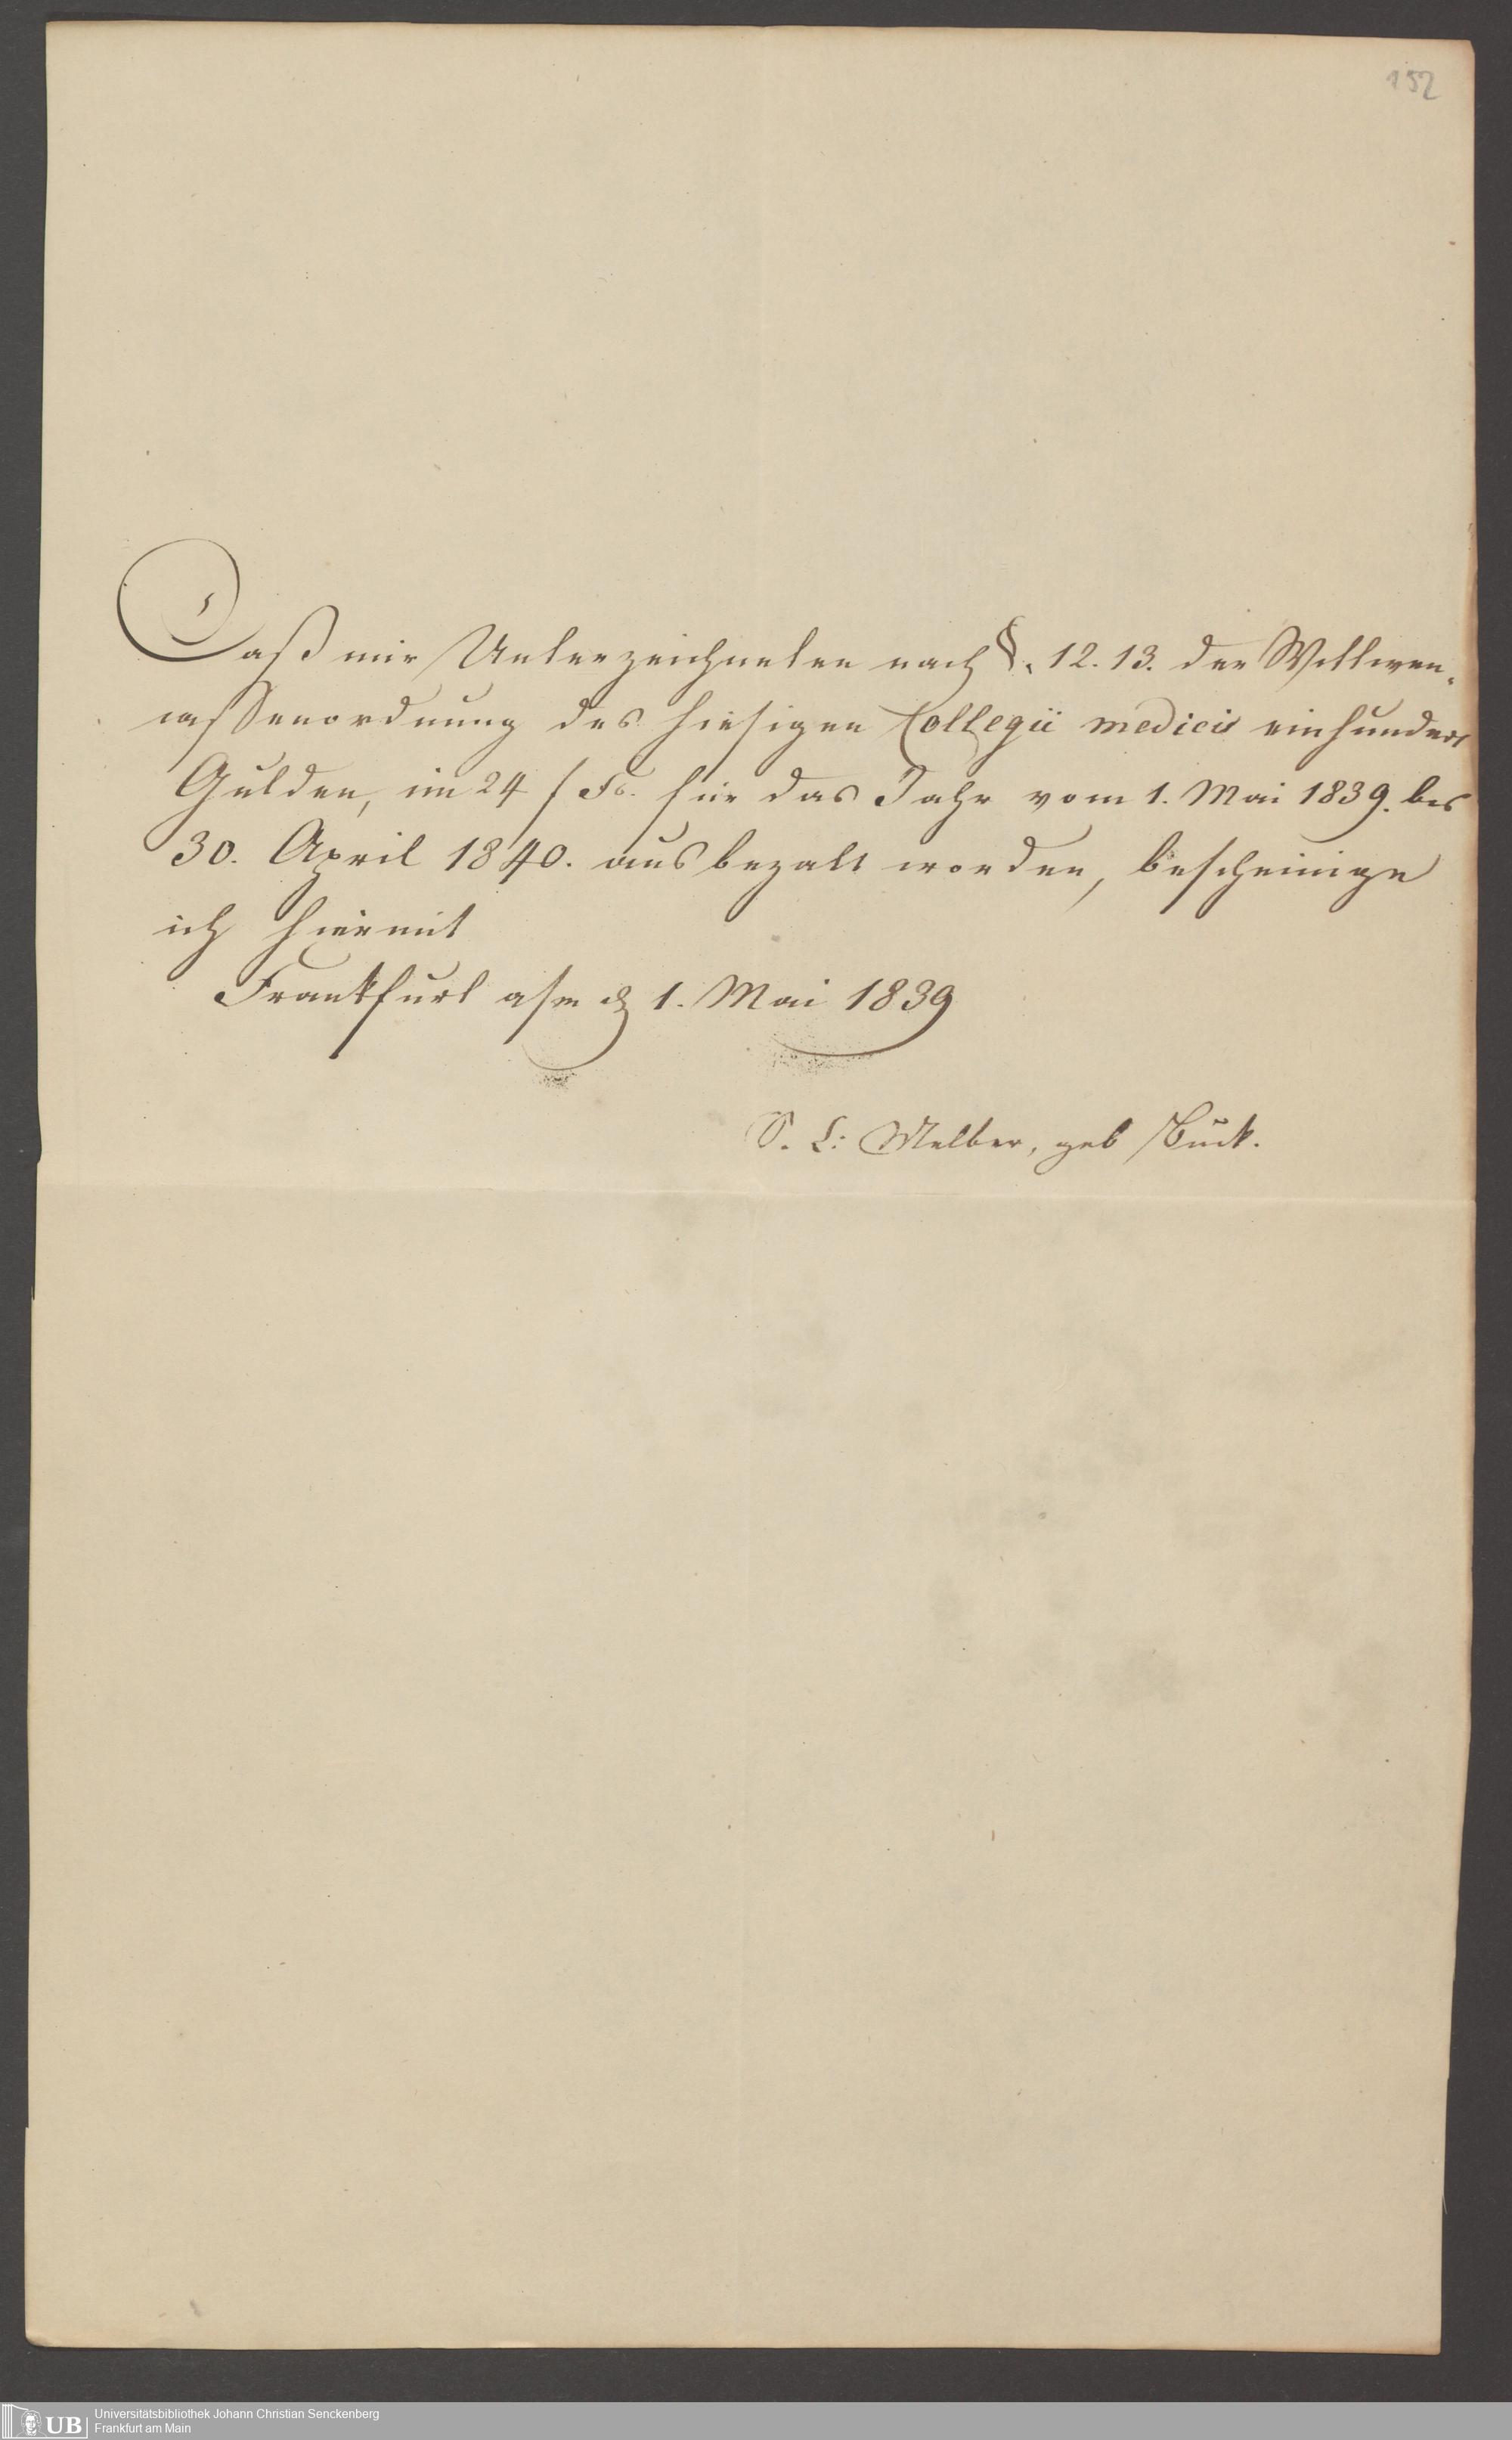 152
Daß mir Unterzeichneten nach §. 12. 13. der Wittwen-
cassenordnung des hiesigen Collegii medici einhundert
Gulden, im 24 f Fs. für das Jahr vom 1. Mai 1839. bis
30. April 1840. ausbezalt worden, bescheinige
ich hiermit
Frankfurt a/m d 1. Mai 1839
S. L: Melber, geb Buck.
UB Universitätsbibliothek Johann Christian Senckenberg
Frankfurt am Main